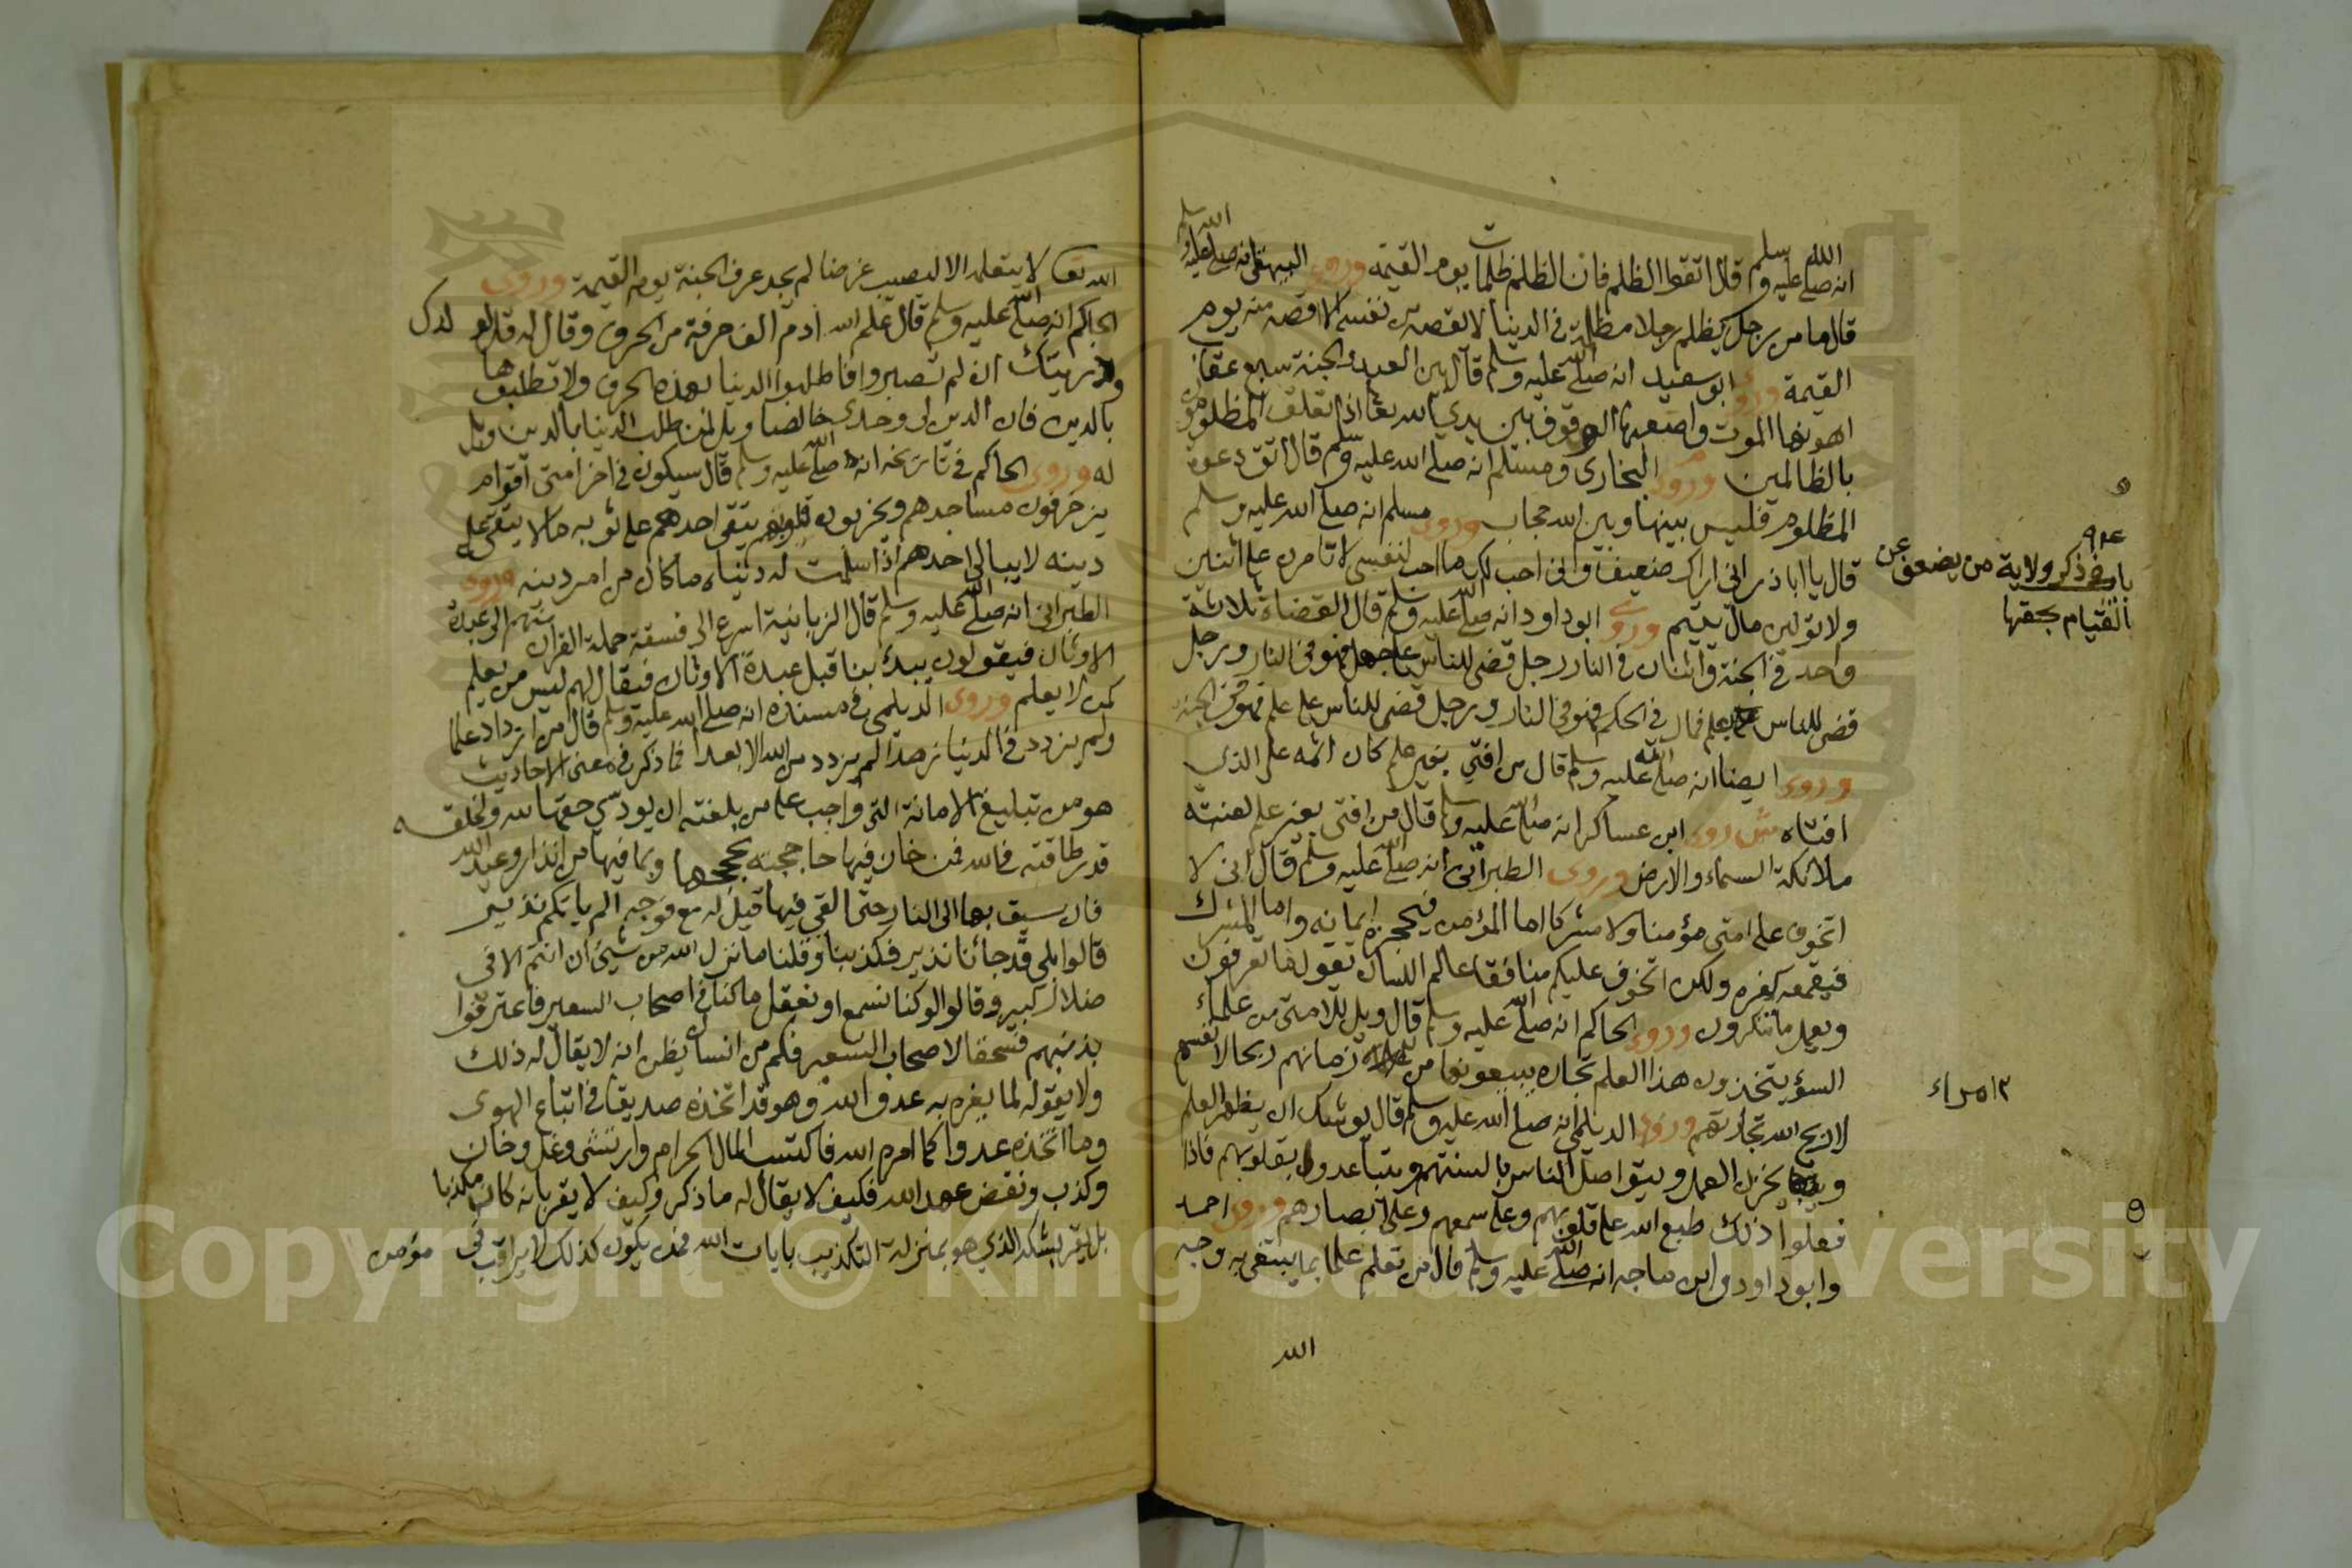 انه صلى الله عليه وسلم قال اتقوا الظلم فان الظلم ظلمات يوم القيمة وروى البيهقي انه صلى الله عليه وسلم
قال ما من رجل يظلم رجلا مظلمة في الدنيا لا يقصه من نفسه الا اقصه منه يوم
القيمة وروى ابو سعيد انه صلى الله عليه وسلم قال بين العبد والجنة سبع عقاب
اهونها الموت واصعبها الوقوف بين يدي الله تعا اذا تعلق المظلومون
بالظالمين وروى البخارى ومسلم انه صلى الله عليه وسلم قال اتق دعوة
المظلوم فليس بينها وبين الله حجاب وروى مسلم انه صلى الله عليه وسلم
قال يا اباذر اني اراك ضعيفا واني احب لك ما احب لنفسي لا تامرن على اثنين
ولا تولين مال يتيم وروى ابو داود انه صلى الله عليه وسلم قال القضاة ثلاثة
واحد في الجنة واثنان في النار رجل قضى للناس على جهل فهو في النار ورجل
قضى للناس بعلم فمال في الحكم فهو في النار ورجل قضى للناس على علم فهو في الجنة
وروى ايضا انه صلى الله عليه وسلم قال من افتي بغير علم كان اثمه على الذى
افتاه وروى ابن عساكر انه صلى الله عليه وسلم قال من افتى بغير علم لعنته
ملائكة السماء والارض وروى الطبراني انه صلى الله عليه وسلم قال اني لا
اتخوف على امتى مؤمنا ولا مشركا اما المؤمن فيحجزه ايمانه واما المشرك
فيقمعه كفره ولكن اتخوف عليكم منافقا عالم اللسان يقول ما تعرفون
ويعمل ما تنكرون وروى الحاكم انه صلى الله عليه وسلم قال ويل للامتى من علماء
السؤ يتخذون هذا العلم تجارة يبيعونها من زمانهم ربحا لانفسهم
لا اربح الله تجارتهم وروى الديلمي انه صلى الله عليه وسلم قال يوشك ان يظهر العلم
ويخزن العمل ويتواصل الناس بالسنتهم ويتباعدون بقلوبهم فاذا
فعلوا ذلك طبع الله على قلوبهم وعلى سمعهم وعلى ابصارهم وروى احمد
وابو داود وابن ماجه انه صلى الله عليه وسلم قال من تعلم علما بما يبتغى به وجه
الله
باب في ذكر ولاية من يضعف عن
القيام بحقها
امراء
الله تعا لا يتعلمه الا ليصيب عرضا لم يجد عرف الجنة يوم القيمة وروى
الحاكم انه صلى الله عليه وسلم قال علم الله ادم الف حرفة من الحروف وقال له قل لولدك
وذريتك ان لم تصبروا فاطلبوا الدنيا بهذه الحرف ولا تطلبوها
بالدين فان الدين لى وحدى خالصا ويل لمن طلب الدنيا بالدين ويل
له وروى الحاكم في تاريخه انه صلى الله عليه وسلم قال سيكون في اخر امتى اقوام
يزخرفون مساجدهم ويخربون قلوبهم يتقى احدهم على ثوبه ما لا يتقى على
دينه لا يبالى احدهم اذا سلمت له دنياه ما كان من امر دينه وروى
الطبراني انه صلى الله عليه وسلم قال الزبانية اسرع الى فسقة حملة القران منهم الى عبدة
الاوثان فيقولون يبدئ بنا قبل عبدة الاوثان فيقال لهم ليس من يعلم
كمن لا يعلم وروى الديلمي في مسنده انه صلى الله عليه وسلم قال من ازداد علما
ولم يزدد في الدنيا زهدا لم يزدد من الله الا بعدا فما ذكر في معنى الاحاديث
هو من تبليغ الامانة التي واجب على من بلغته ان يودي حقها لله ولخلقه
قدر طاقته فالله فمن خان فيها حاججته بحججها وبما فيها من انذار وعيد الله
فان سيق بها الى النار حتى القي فيها قيل له مع فوجه الم ياتكم نذير
قالوا بلى قد جائنا نذير فكذبنا وقلنا ما نزل الله من شيئ ان انتم الا في
ضلال كبير وقالوا لو كنا نسمع او نعقل ما كنا في اصحاب السعير فاعترفوا
بذنبهم فسحقا لاصحاب السعير فكم من انسان يظن انه لا يقال له ذلك
ولا يقوله لما يغره به عدو الله وهو قد اتخذه صديقا في اتباع الهوى
وما اتخذه عدوا كما امره الله فاكتسب المال الحرام وارتشى وغل وخان
وكذب ونقض عهد الله فكيف لا يقال له ما ذكر وكيف لا يقر بانه كان مكذبا
بل يقر بشكه الذي هو بمنزلة التكذيب بايات الله فمن يكون كذلك لا يراقب في مؤمن